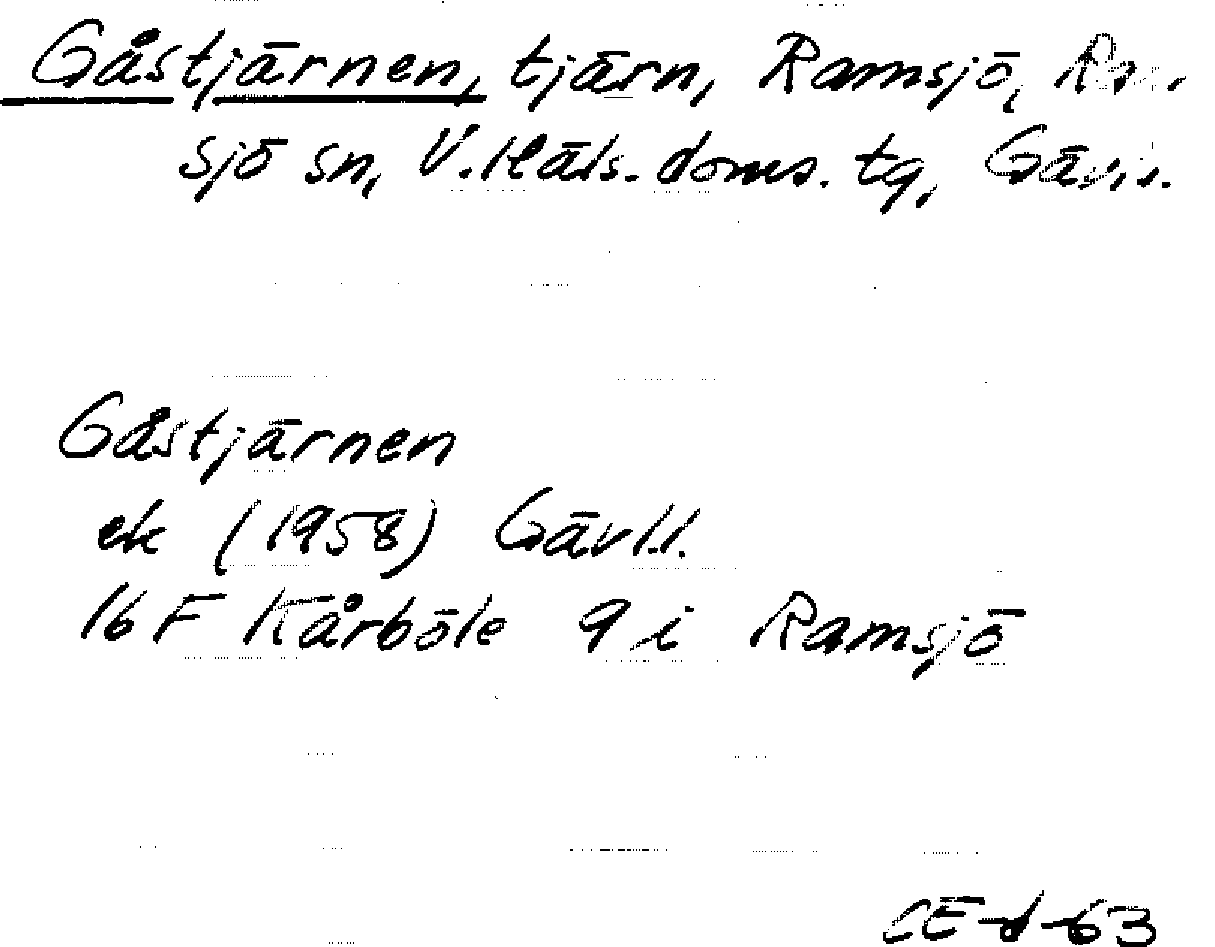 Gåstjärnen, tjärn, Ramsjö, Ram
sjö sn, V. Häls. doms. tg, Gävl.l.
Gåstjärnen
ek (1958) Gävl.l.
16 F Kårböle 9 i Ramsjö
CE-d-63